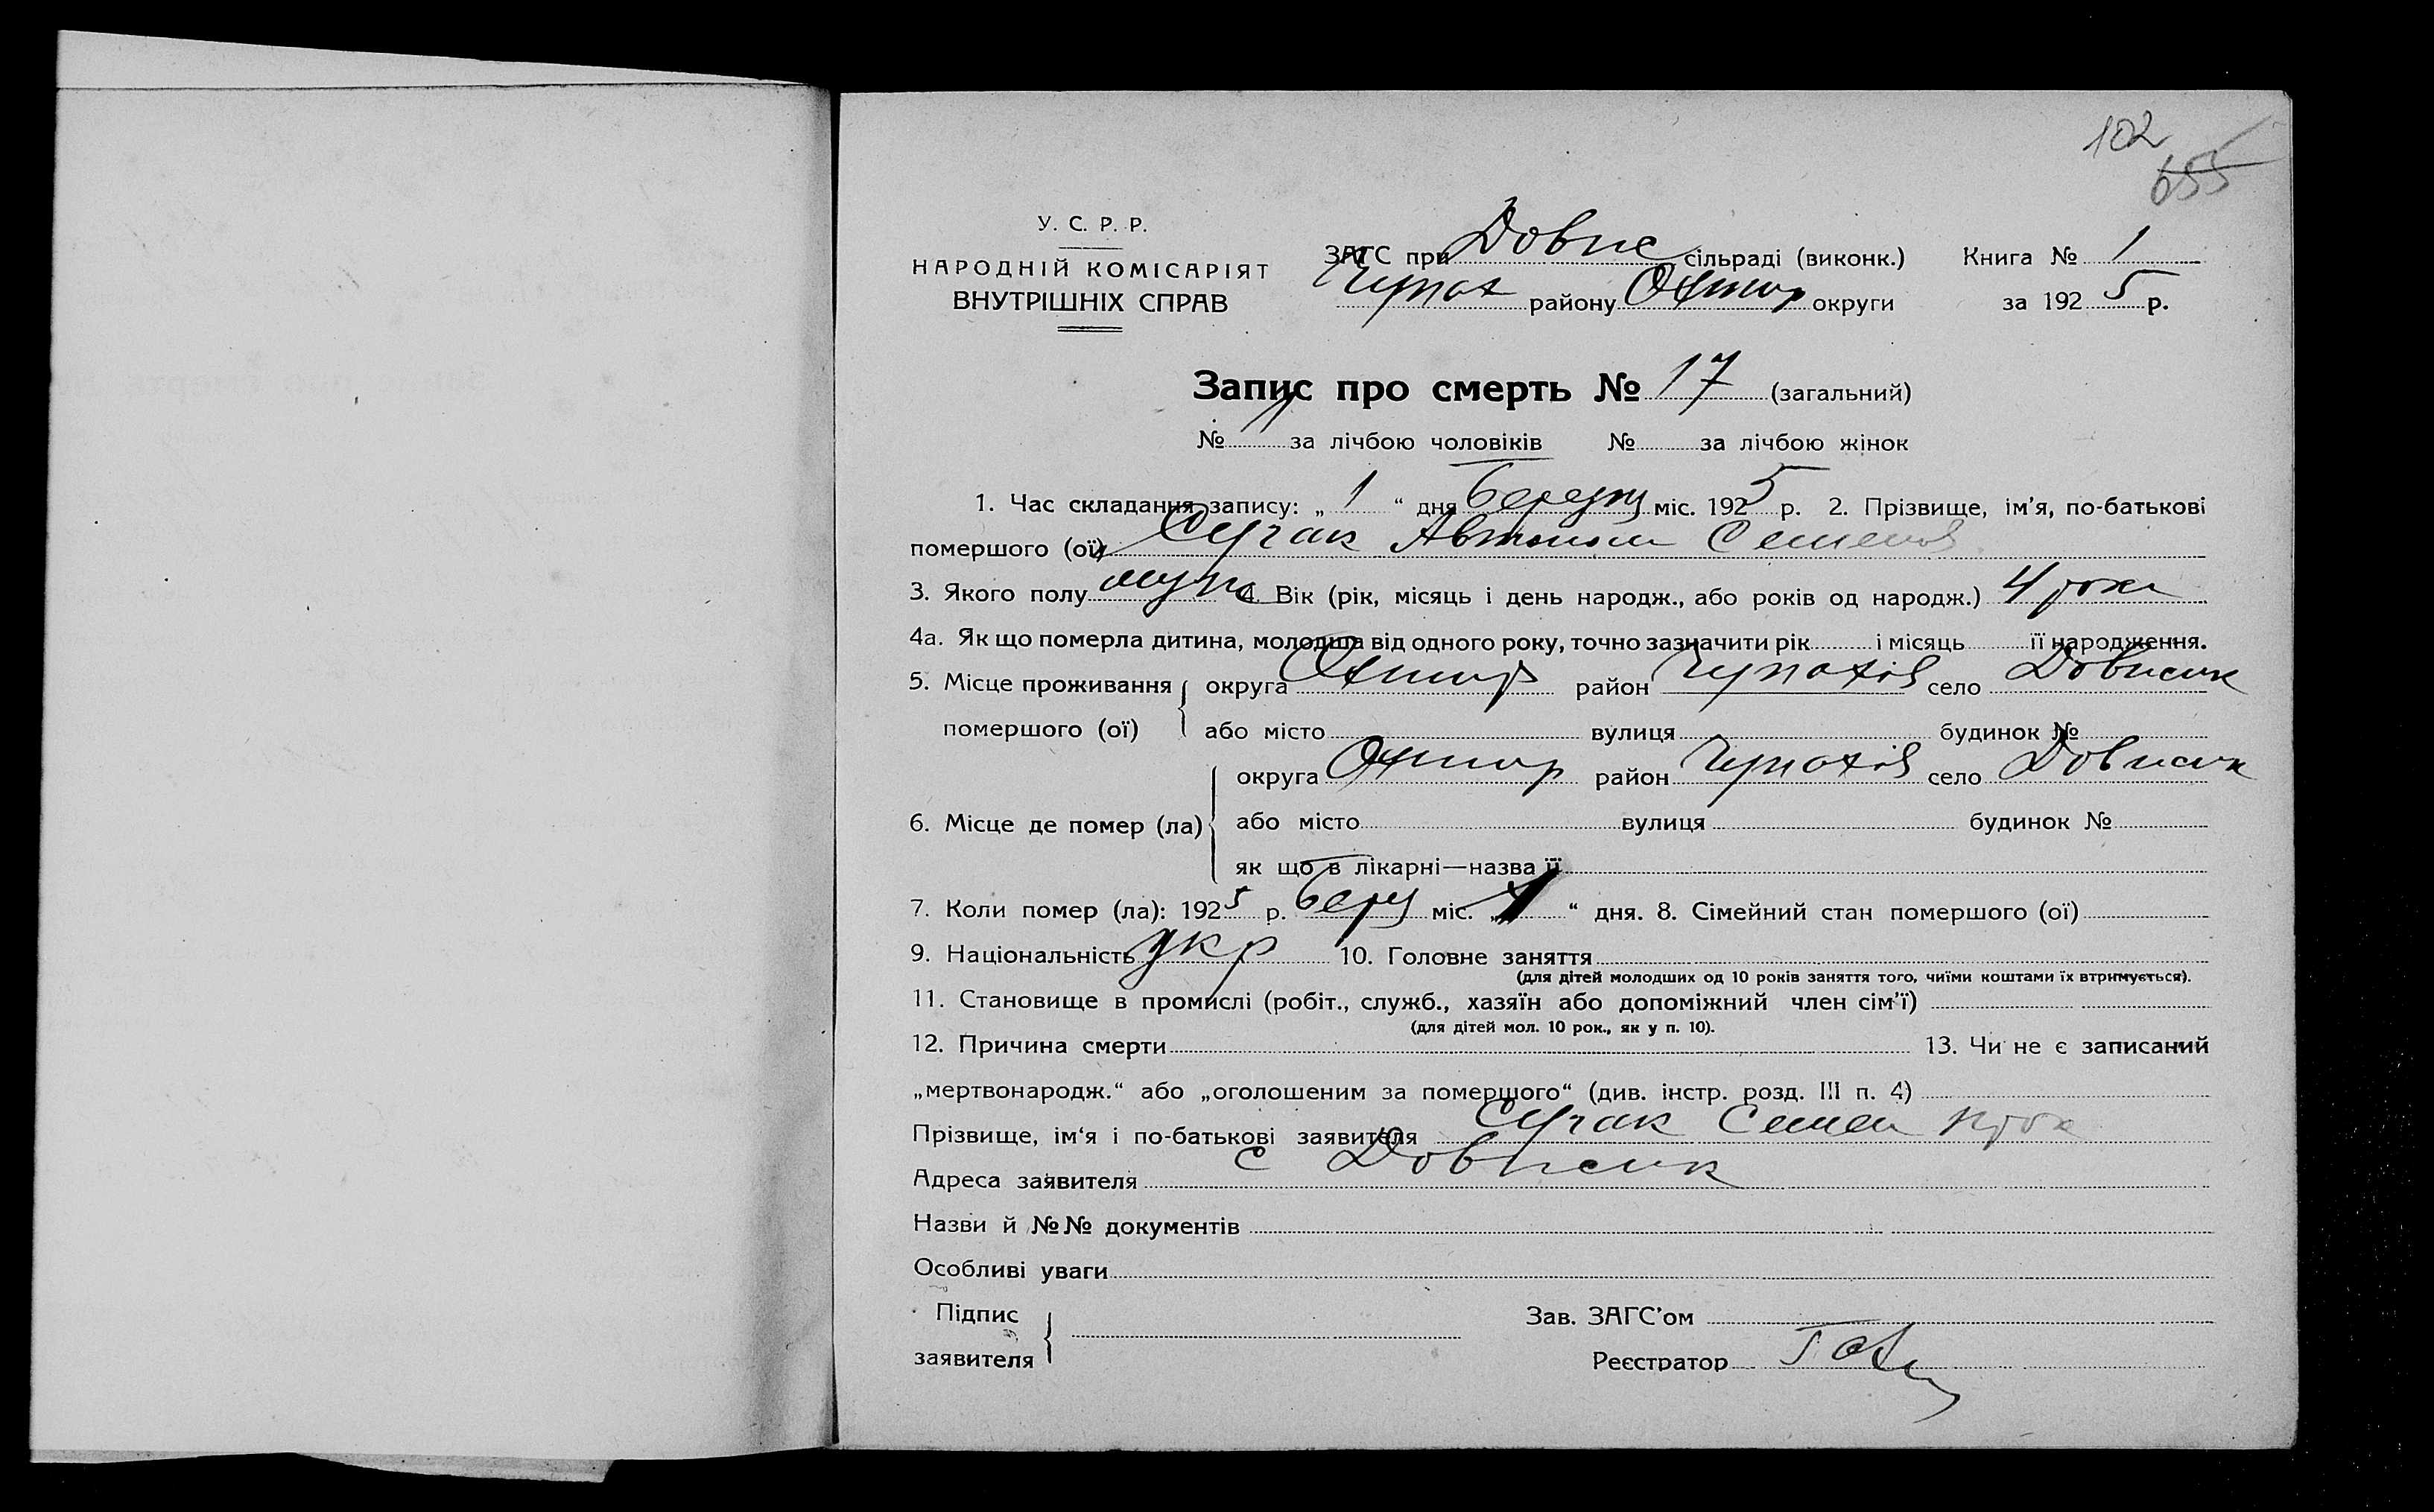 102
655
У. С. Р. Р.
НАРОДНІЙ КОМІСАРІЯТ
ВНУТРІШНІХ СПРАВ
ЗАГС при Довж сільраді (виконк.) Книга № 1
Чупах району Охтир округи за 192 5 р.
Запис про смерть № 17 (загальний)
№ за лічбою чоловіків № за лічбою жінок
1. Час складання запису: „ 1 “ дня міс. 192 5 р. 2. Прізвище, ім'я, по-батькові
помершого (ої) Сугак Автоном Семенов
3. Якого полу муж 4. Вік (рік, місяць і день народж., або років од народж.) 4 роки
4а. Як що померла дитина, молодша від одного року, точно зазначити рік і місяць її народження.
5. Місце проживання округа Охтир район Чупахів село Довжик
помершого (ої) або місто вулиця будинок №
округа Охтир район Чупахів село Довжик
6. Місце де помер (ла) або місто вулиця будинок №
як що в лікарні—назва її
7. Коли помер (ла): 192 5 р. берз міс. „ 1 “ дня. 8. Сімейний стан помершого (ої)
9. Національність укр 10. Головне заняття
(для дітей молодших од 10 років заняття того, чиїми коштами їх втримується).
11. Становище в промислі (робіт., служб., хазяїн або допоміжний член сім'ї)
(для дітей мол. 10 рок., як у п. 10).
12. Причина смерти 13. Чи не є записаний
„мертвонародж.“ або „оголошеним за помершого“ (див. інстр. розд. III п. 4)
Прізвище, ім'я і по-батькові заявителя Сугак Семен
Адреса заявителя с Довжик
Назви й №№ документів
Особливі уваги
Підпис
заявителя
Зав. ЗАГС'ом
Реєстратор